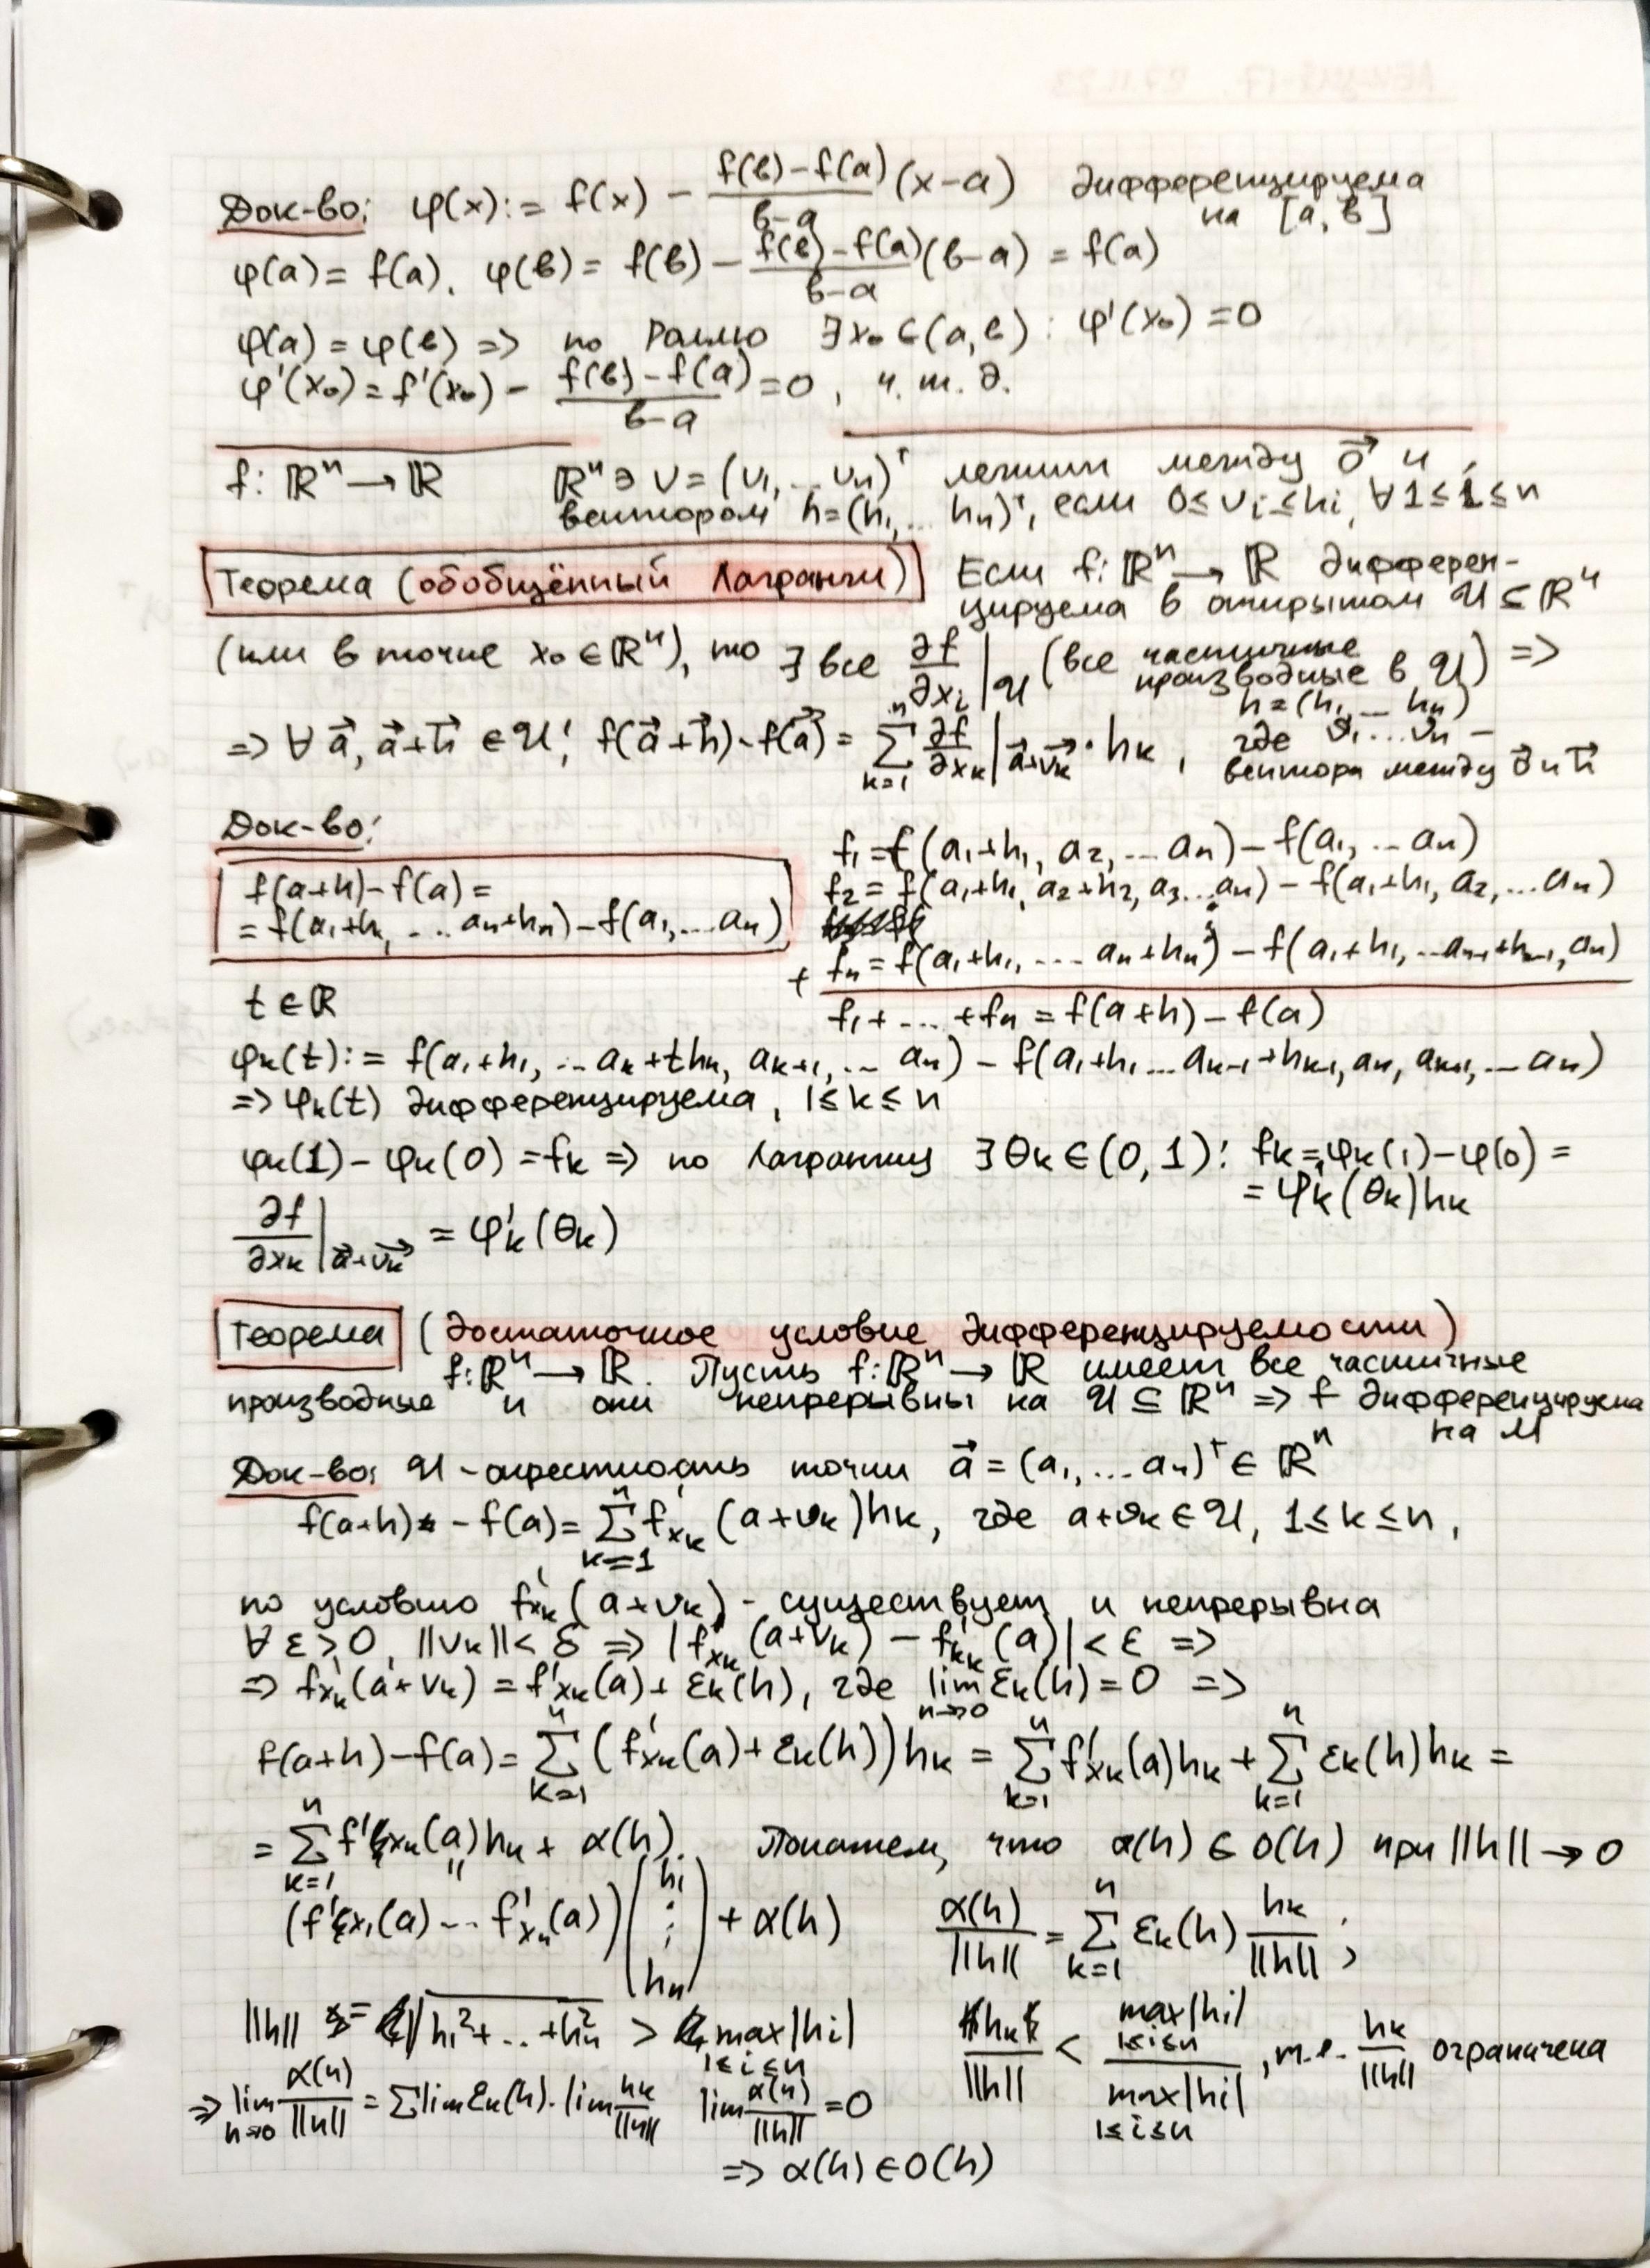 Док-во: φ(x) := f(x) − (f(b)−f(a))/(b−a) (x−a) дифференцируема на [a, b]
φ(a) = f(a). φ(b) = f(b) − (f(b)−f(a))/(b−a) (b−a) = f(a)
φ(a) = φ(b) => по Роллю ∃x₀ ∈ (a, b) : φ'(x₀) = 0
φ'(x₀) = f'(x₀) − (f(b)−f(a))/(b−a) = 0, ч. т. д.
f: ℝⁿ → ℝ ℝⁿ ∋ v = (v₁, ... vₙ)ᵀ лежит между 0⃗ и
вектором h = (h₁, ... hₙ)ᵀ, если 0 ≤ vᵢ ≤ hᵢ, ∀ 1 ≤ i ≤ n
Теорема (обобщённый Лагранжи) Если f: ℝⁿ → ℝ дифферен-
цируема в открытом 𝒰 ⊆ ℝⁿ
(или в точке x₀ ∈ ℝⁿ), то ∃ все ∂f/∂xᵢ |𝒰 (все частичные производные в 𝒰) =>
h = (h₁ ... hₙ)
=> ∀ a⃗, a⃗+h⃗ ∈ 𝒰: f(a⃗+h⃗) − f(a⃗) = Σₖ₌₁ⁿ ∂f/∂xₖ |a⃗+vₖ⃗ · hₖ, где v₁ ... vₙ − вектора между 0⃗ и h⃗
Док-во:
f(a+h) − f(a) =
= f(a₁+h₁, ... aₙ+hₙ) − f(a₁, ... aₙ)
f₁ = f(a₁+h₁, a₂, ... aₙ) − f(a₁, ... aₙ)
f₂ = f(a₁+h₁, a₂+h₂, a₃ ... aₙ) − f(a₁+h₁, a₂, ... aₙ)
⋮
+ fₙ = f(a₁+h₁, ... aₙ+hₙ) − f(a₁+h₁, ... aₙ₋₁+hₙ₋₁, aₙ)
f₁ + ... + fₙ = f(a+h) − f(a)
t ∈ ℝ
φₖ(t) := f(a₁+h₁, ... aₖ+thₖ, aₖ₊₁, ... aₙ) − f(a₁+h₁ ... aₖ₋₁+hₖ₋₁, aₖ, aₖ₊₁, ... aₙ)
=> φₖ(t) дифференцируема, 1 ≤ k ≤ n
φₖ(1) − φₖ(0) = fₖ => по Лагранжу ∃ θₖ ∈ (0, 1): fₖ = φₖ(1) − φ(0) =
= φ'ₖ(θₖ)hₖ
∂f/∂xₖ |a⃗+vₖ⃗ = φ'ₖ(θₖ)
Теорема (достаточное условие дифференцируемости)
f: ℝⁿ → ℝ. Пусть f: ℝⁿ → ℝ имеет все частичные
производные и они непрерывны на 𝒰 ⊆ ℝⁿ => f дифференцируема
на 𝒰
Док-во: 𝒰 - окрестность точки a⃗ = (a₁, ... aₙ)ᵀ ∈ ℝⁿ
f(a+h) − f(a) = Σₖ₌₁ⁿ f'ₓₖ(a+vₖ)hₖ, где a+vₖ ∈ 𝒰, 1 ≤ k ≤ n,
по условию f'ₓₖ(a+vₖ) - существует и непрерывна
∀ ε > 0, ||vₖ|| < δ => |f'ₓₖ(a+vₖ) − f'ₖₖ(a)| < ε =>
=> f'ₓₖ(a+vₖ) = f'ₓₖ(a) + εₖ(h), где lim h→0 εₖ(h) = 0 =>
f(a+h) − f(a) = Σₖ₌₁ⁿ (f'ₓₖ(a) + εₖ(h))hₖ = Σₖ₌₁ⁿ f'ₓₖ(a)hₖ + Σₖ₌₁ⁿ εₖ(h)hₖ =
= Σₖ₌₁ⁿ f'ₓₖ(a)hₖ + α(h). Покажем, что α(h) ∈ o(h) при ||h|| → 0
(f'ₓ₁(a) ... f'ₓₙ(a)) (h₁ ⋮ hₙ) + α(h) α(h)/||h|| = Σₖ₌₁ⁿ εₖ(h) hₖ/||h|| ;
||h|| = √(h₁² + ... + hₙ²) > max|hᵢ| 1≤i≤n hₖ/||h|| < max|hᵢ| 1≤i≤n / max|hᵢ| 1≤i≤n, т.е. hₖ/||h|| ограничена
=> lim h→0 α(h)/||h|| = Σ lim εₖ(h) · lim hₖ/||h|| lim α(h)/||h|| = 0
=> α(h) ∈ o(h)